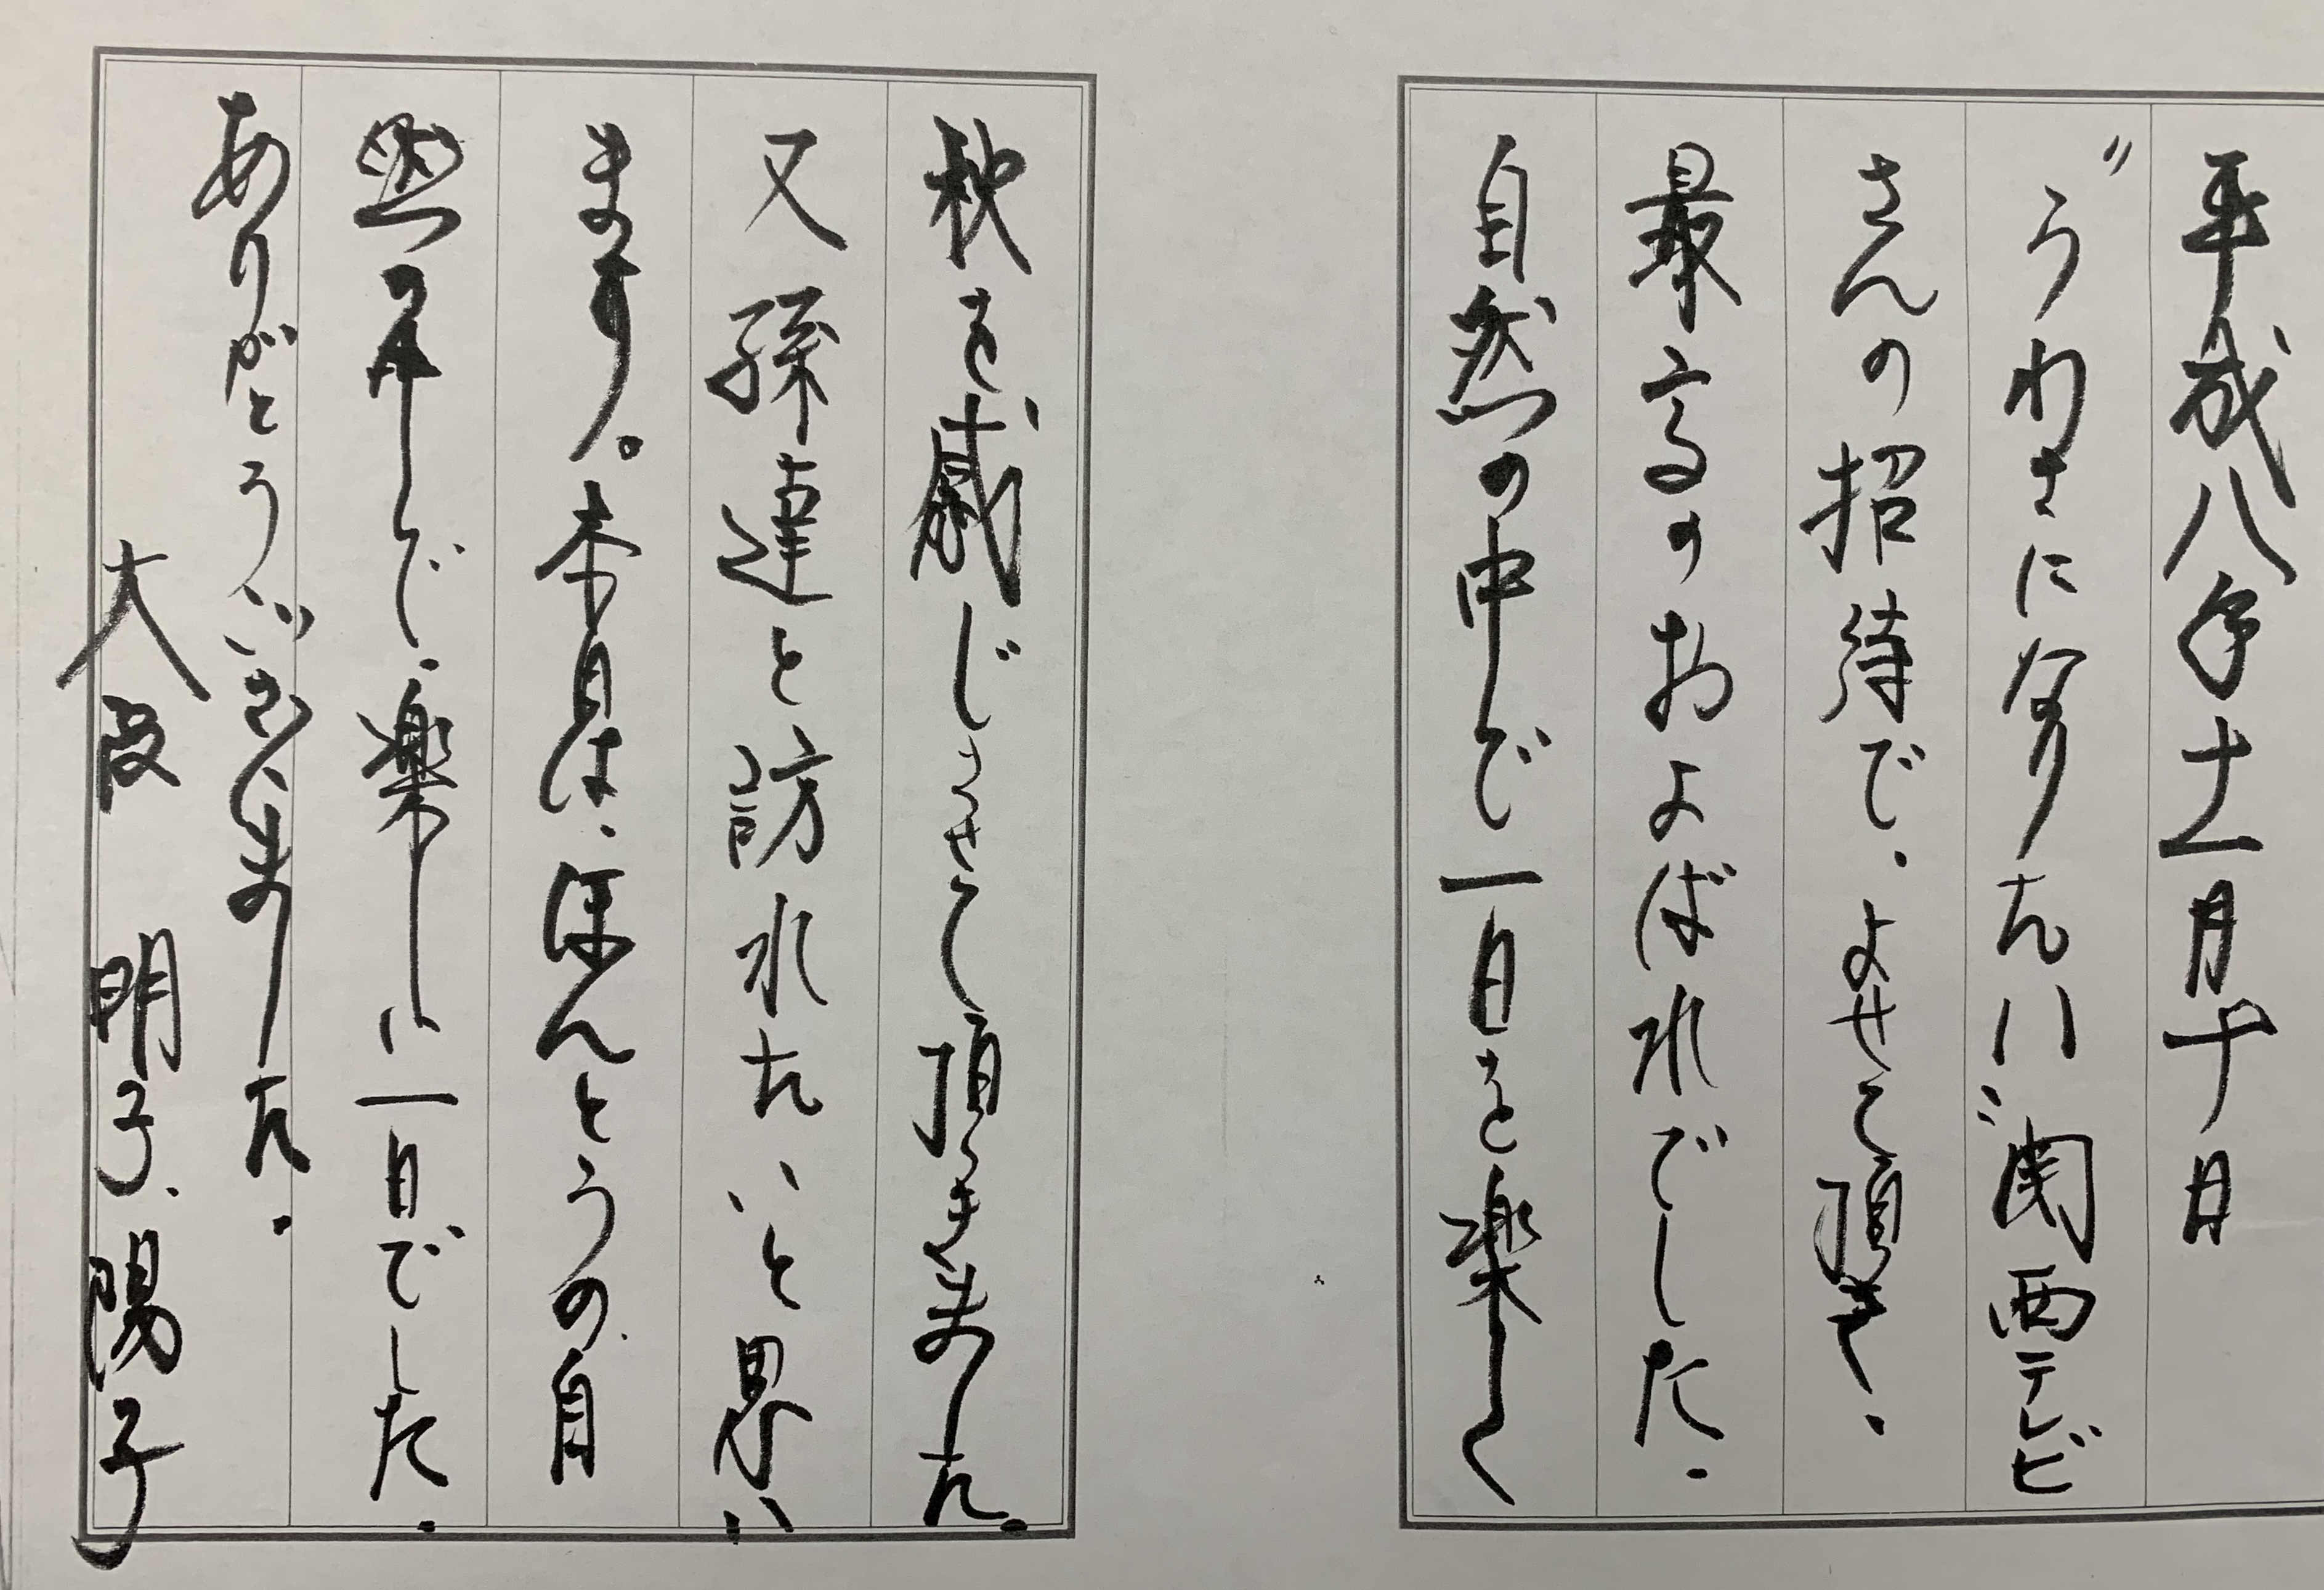 平成八年十一月十日
〝うわさになりたい〟関西テレビ
さんの招待で、よせて頂き、
最高のおよばれでした、
自然の中で一日を楽しく
秋を感じさせて頂きました。
又孫達と訪れたいと思い
ます。本日は、ほんとうの、自
然の中で、楽しい一日でした、
ありがとうございました、
大阪 明子、陽子